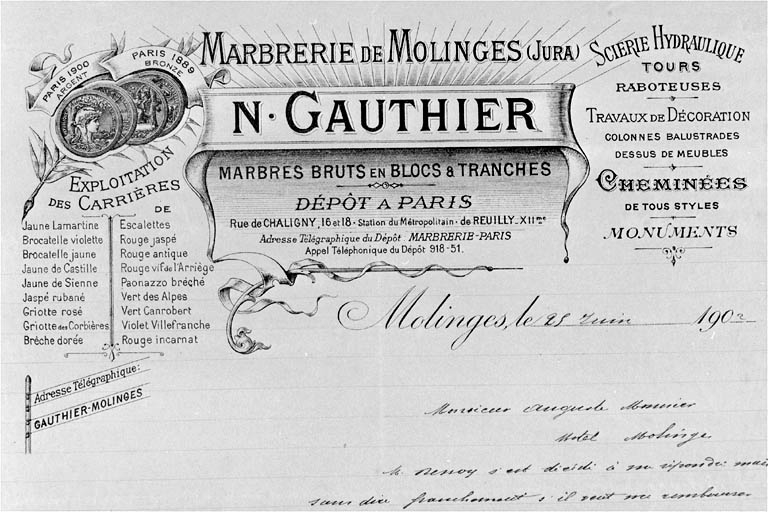 PARIS 1900
ARGENT
PARIS 1889
BRONZE
MARBRERIE DE MOLINGES (JURA)
N. GAUTHIER
MARBRES BRUTS EN BLOCS & TRANCHES
DÉPÔT A PARIS
Rue de CHALIGNY, 16 et 18 - Station du Métropolitain - de REUILLY - XIIme
Adresse Télégraphique du Dépôt . MARBRERIE-PARIS
Appel Téléphonique du Dépôt 918-51.
SCIERIE HYDRAULIQUE
TOURS
RABOTEUSES
TRAVAUX DE DÉCORATION
COLONNES BALUSTRADES
DESSUS DE MEUBLES
CHEMINÉES
DE TOUS STYLES
MONUMENTS
EXPLOITATION
DES CARRIÈRES
DE
Jaune Lamartine
Brocatelle violette
Brocatelle jaune
Jaune de Castille
Jaune de Sienne
Jaspé rubané
Griotte rosé
Griotte des Corbières
Brèche dorée
Escalettes
Rouge jaspé
Rouge antique
Rouge vif de l'Arriège
Paonazzo bréché
Vert des Alpes
Vert Canrobert
Violet Villefranche
Rouge incarnat
Adresse Télégraphique:
GAUTHIER-MOLINGES
Molinges, le 25 Juin 1902
Monsieur Auguste
Hotel Molinge
M. s'est décidé à me répondre mais
sans dire franchement s'il veut me rembourser